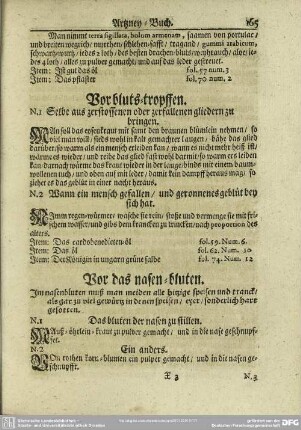 Artzney-Buch. 165
Man nimmt terra sigillata, bolum armenum, saamen von portulac/
und breiten wegerich/ myrrhen/ schlehen-safft/ tragand/ gummi arabicum,
schwartzwurtz/ iedes 2 loth/ des besten drachen-bluts/ weyhrauch/ aloe/ ie-
des 4 loth/ alles zu pulver gemacht/ und auf das leder gestreuet.
Item: Ist gut das öl fol. 57 num. 3
Item: Das pflaster fol. 70 num. 2
Vor bluts-tropffen.
N.1 Selbe aus zerstossenen oder zerfallenen gliedern zu
bringen.
Man soll das rosenkraut mit samt den braunen blümlein nehmen/ so
viel man will/ solches wohl in kalt gemächer laugen/ bähe das glied
darüber/ so warm als ein mensch erleiden kan/ wann es nicht mehr heiß ist/
wärme es wieder/ und reibe das glied
kan/ darnach wärme das kraut wieder in der lauge/ binde mit einem baum-
wollenen tuch/ und oder zwey mal, oder damit kein dampf heraus mag/ so
ziehet es das geblüt in einer nacht heraus.
N.2 Wann ein mensch gefallen/ und geronnenes geblüt bey
sich hat.
Nimm regen-würmer/ wasche sie rein/ stosse und vermenge sie mit fri-
schem wasser/ und gibs dem krancken zu trucken/ nach proportion des
alters.
Item: Das cardobenedicten-öl fol. 59. Num. 6.
Item: Das öl fol. 62. Num. 10
Item: Der Königin in ungarn grüne salbe fol. 74. Num. 12
Vor das nasen-bluten.
Im nasenbluten muß man meiden alle hitzige speisen und tranck/
als gar zu viel gewürtz in denen speisen/ eyer/ sonderlich hart
gesotten.
N.1 Das bluten der nasen zu stillen.
Mauß-öhrlein-kraut zu pulver gemacht/ und in die nase geschnupf-
fet.
N.2 Ein anders.
Von rothen korn-blumen ein pulver gemacht/ und in die nasen ge-
schnupfft.
X 3 N.3